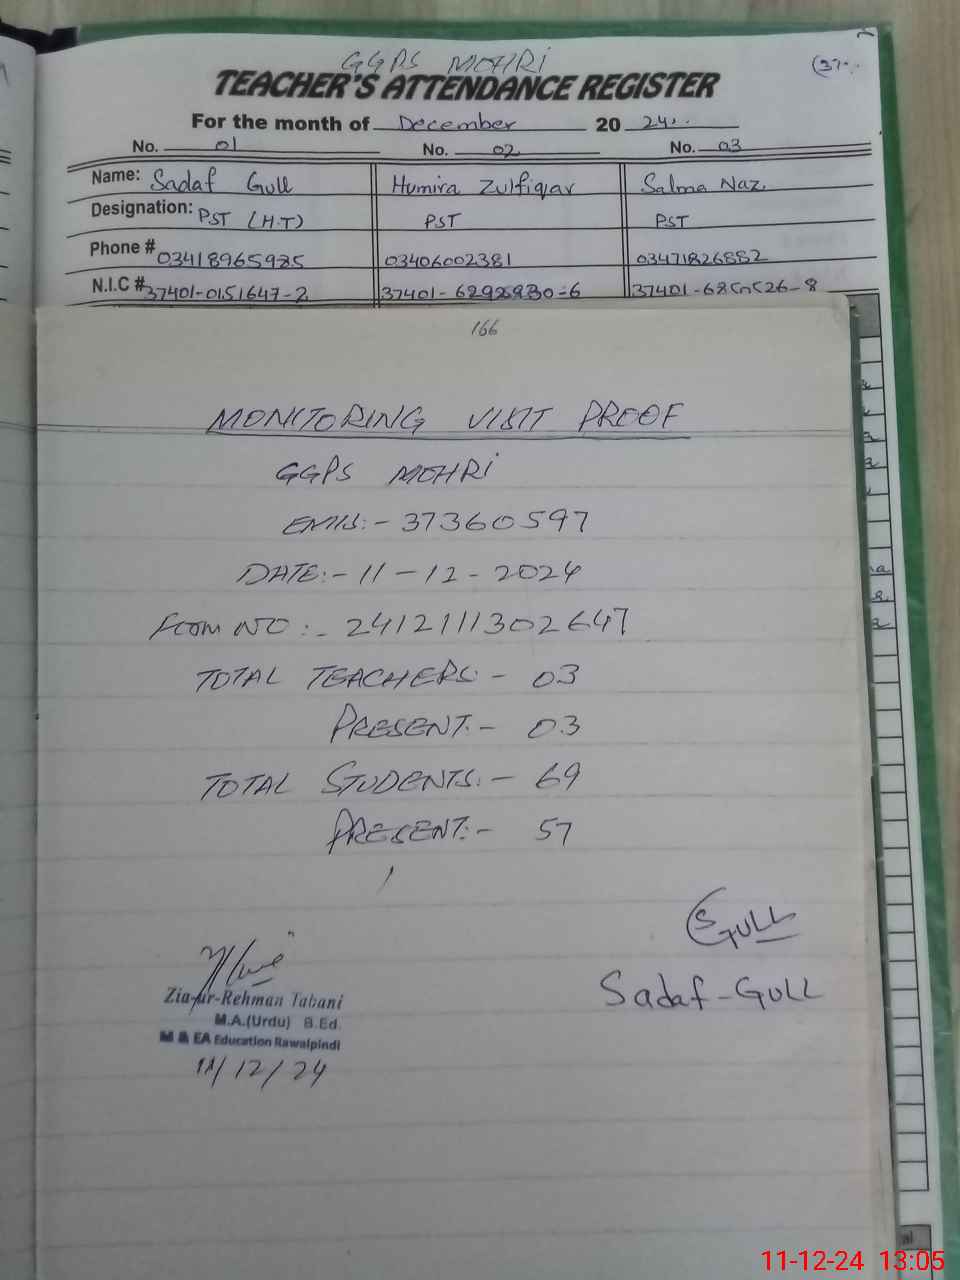 GGPS MOHRi
(37-.
TEACHER'S ATTENDANCE REGISTER
For the month of December 20 24
No. 01 No. 02 No. 03
Name: Sadaf Gull Humira Zulfiqar Salma Naz.
Designation: PST (H.T) PST PST
Phone # 03418965985 03406002381 03471826882
N.I.C # 37401-0151647-2
166
MONITORING VISIT PROOF
GGPS MOHRi
EMIS:- 37360597
DATE:- 11-12-2024
Form NO:- 2412111302647
TOTAL TEACHERS:- 03
PRESENT:- 03
TOTAL STUDENTS:- 69
PRESENT:- 57
SGULL
Sadaf-GULL
Zia-ur-Rehman Tabani
M.A.(Urdu) B.Ed.
M & EA Education Rawalpindi
11/12/24
11-12-24 13:05